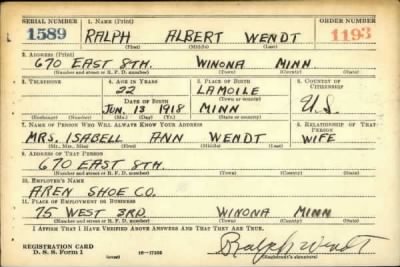 SERIAL NUMBER 1. NAME (Print) ORDER NUMBER
1589 RALPH ALBERT WENDT 1193
(First) (Middle) (Last)
2. ADDRESS (Print)
670 EAST 8TH. WINONA MINN
(Number and street or R. F. D. number) (Town) (County) (State)
3. TELEPHONE 4. AGE IN YEARS 5. PLACE OF BIRTH 6. COUNTRY OF CITIZENSHIP
22 LAMOILE
DATE OF BIRTH (Town or county)
JUN. 13 1918 MINN U.S.
(Exchange) (Number) (Mo.) (Day) (Yr.) (State or country)
7. NAME OF PERSON WHO WILL ALWAYS KNOW YOUR ADDRESS 8. RELATIONSHIP OF THAT PERSON
MRS. ISABELL ANN WENDT WIFE
(Mr., Mrs., Miss) (First) (Middle) (Last)
9. ADDRESS OF THAT PERSON
670 EAST 8TH. WINONA MINN
(Number and street or R. F. D. number) (Town) (County) (State)
10. EMPLOYER'S NAME
AREN SHOE CO.
11. PLACE OF EMPLOYMENT OR BUSINESS
75 WEST 3RD. WINONA MINN
(Number and street or R. F. D. number) (Town) (County) (State)
I AFFIRM THAT I HAVE VERIFIED ABOVE ANSWERS AND THAT THEY ARE TRUE.
REGISTRATION CARD
D. S. S. Form 1 Ralph Wendt
(Registrant's signature)